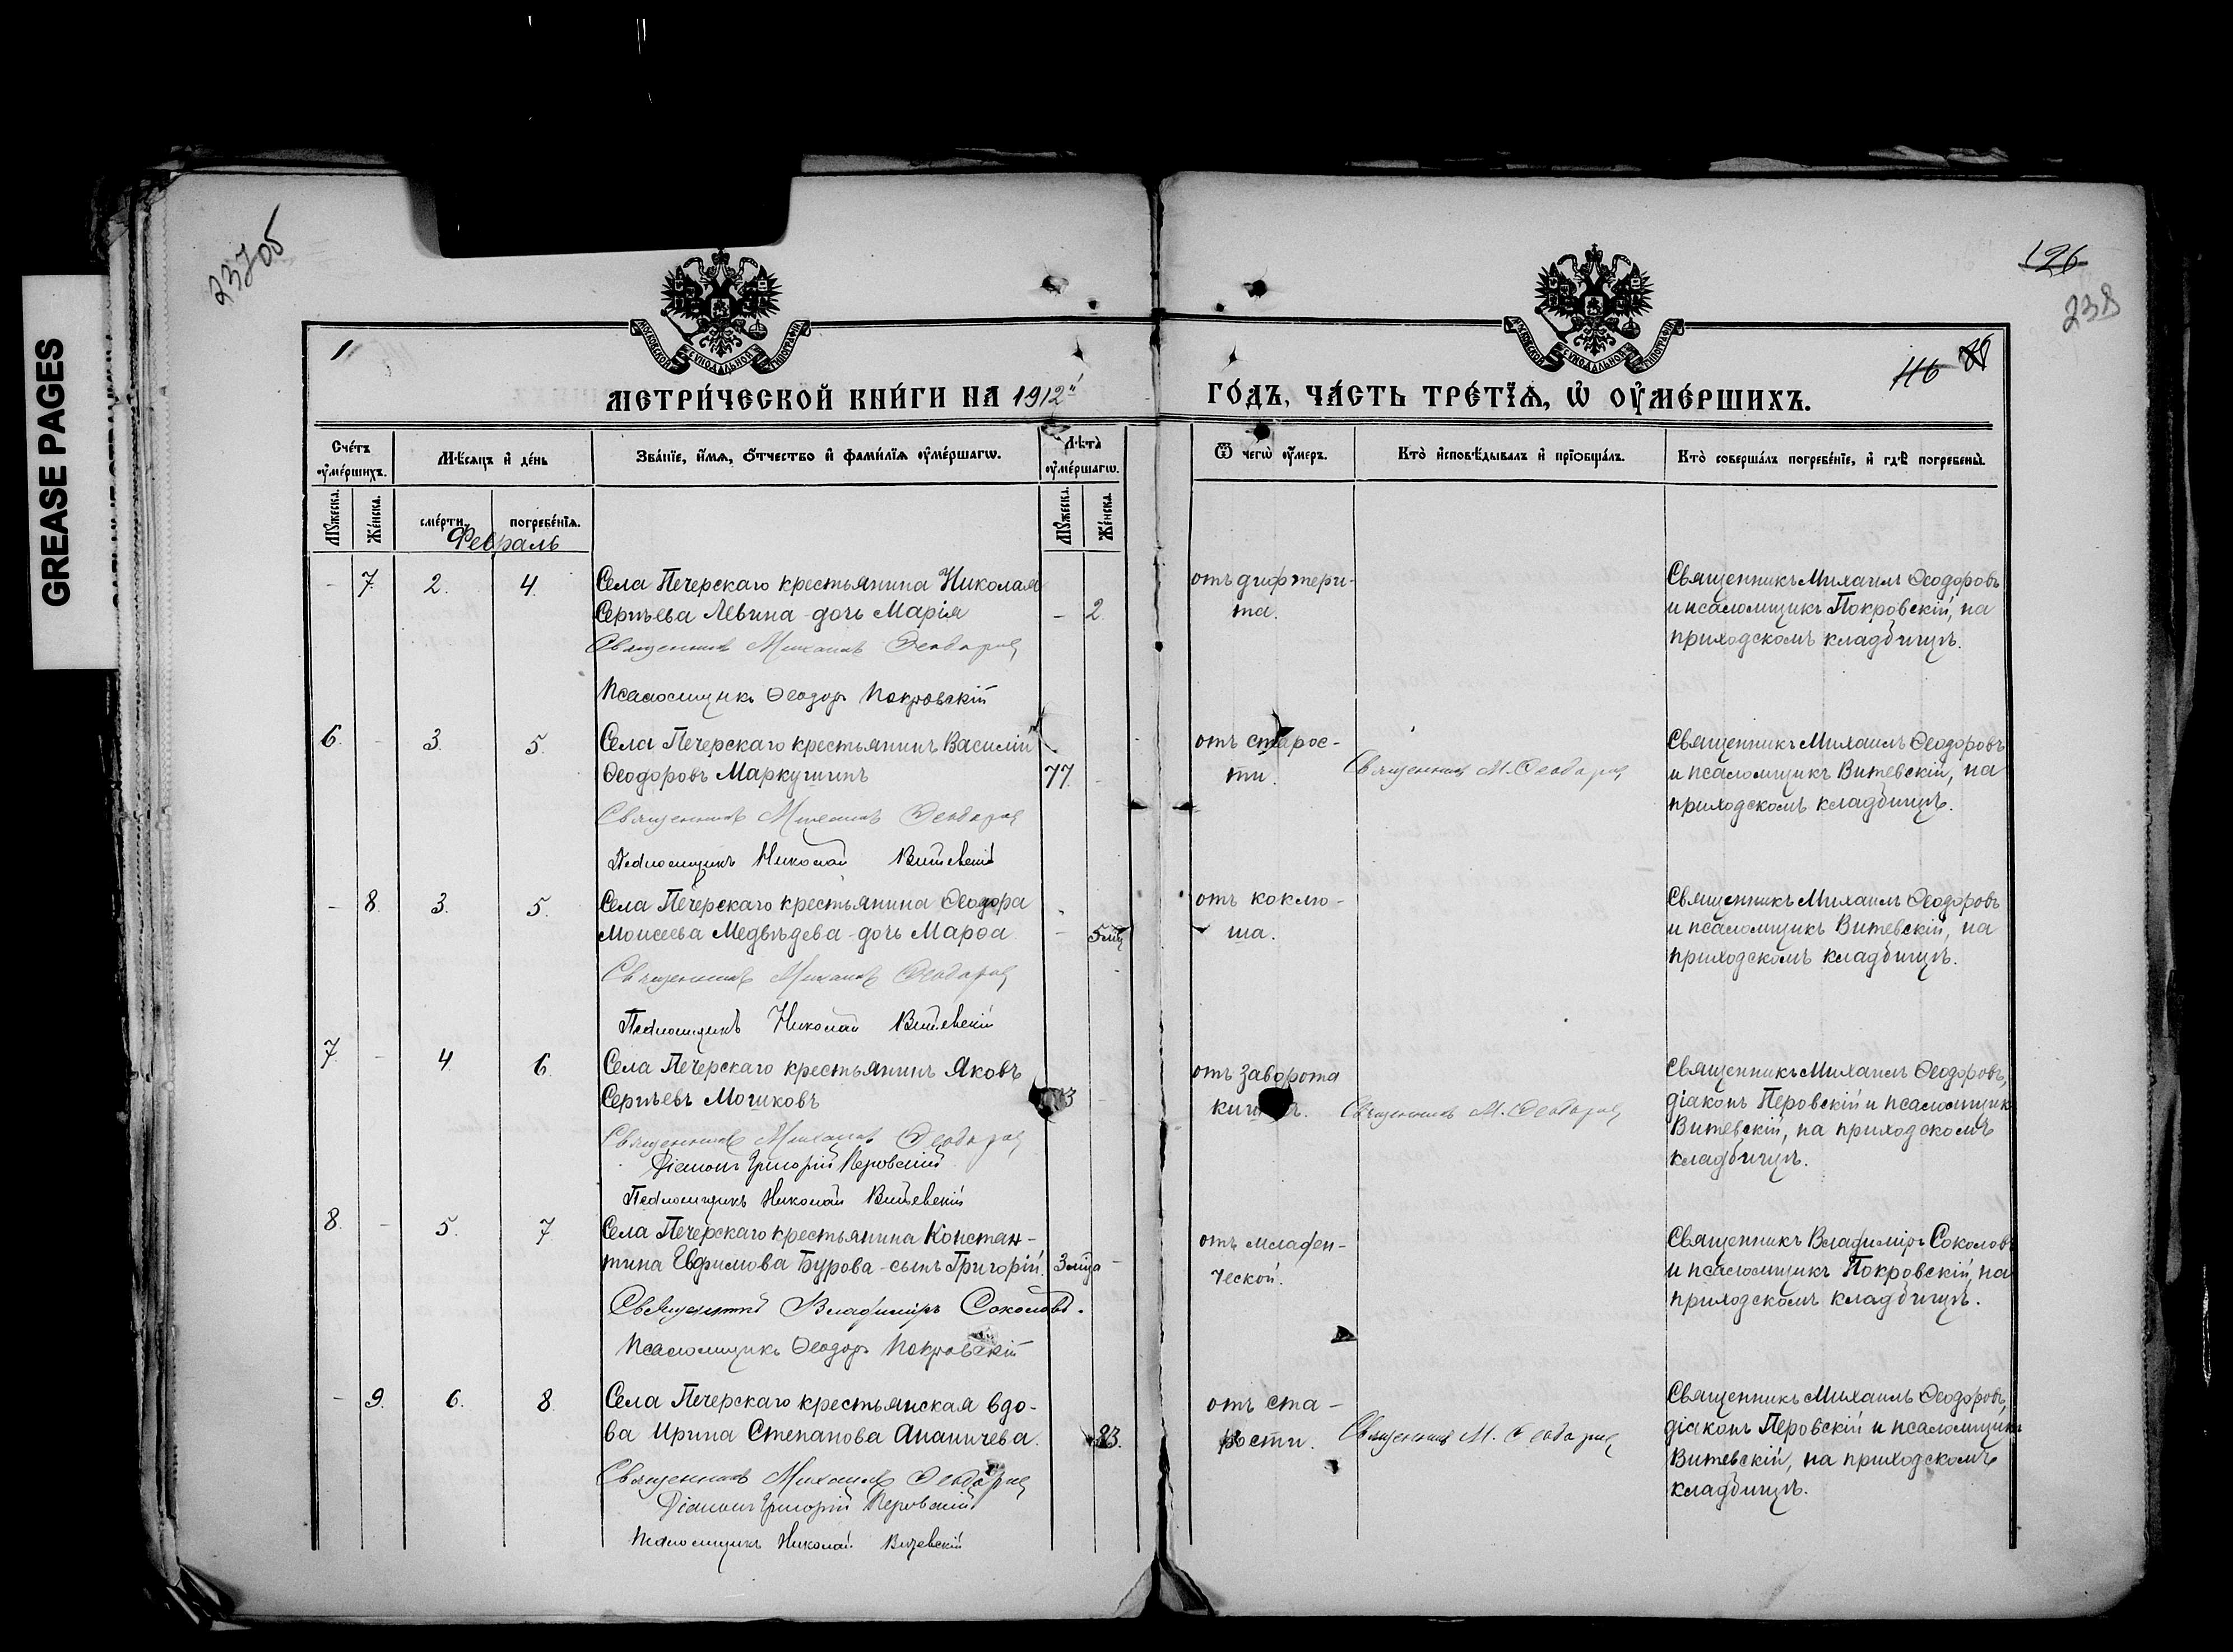 GREASE PAGES
237об
126
238
1
116
МОСКОВСКОЙ СѴНОДАЛЬНОЙ ТИПОГРАФІИ
МОСКОВСКОЙ СѴНОДАЛЬНОЙ ТИПОГРАФІИ
МЕТРИ́ЧЕСКОЙ КНИ́ГИ НА 1912й
ГО́ДЪ, ЧА́СТЬ ТРЕ́ТІѦ, Ѽ ОУ҆МЕ́РШИХЪ.
Сче́тъ оу҆ме́ршихъ.
Мѣ́сяцъ и҆ де́нь
Зва́нїе, и҆́мѧ, ѻ҆́тчество и҆ фами́лїѧ оу҆ме́ршагѡ.
Лѣ́та оу҆ме́ршагѡ.
Ѿ чегѡ̀ оу҆́меръ.
Кто̀ и҆сповѣ́дывалъ и҆ прїѡбща́лъ.
Кто̀ соверша́лъ погребе́нїе, и҆ гдѣ̀ погребены̀.
Мꙋ́жеска.
Же́нска.
сме́рти.
погребе́нїѧ.
Мꙋ́жеска.
Же́нска.
Февраль
- 7. 2. 4. Села Печерскаго крестьянина Николая
Сергѣева Левина - дочь Марія - 2.
Священникъ Михаилъ Ѳеодоровъ
Псаломщикъ Ѳеодоръ Покровскій
отъ дифтери-
та.
Священникъ Михаилъ Ѳеодоровъ
и псаломщикъ Покровскій, на
приходскомъ кладбищѣ.
6. - 3. 5. Села Печерскаго крестьянинъ Василій
Ѳеодоровъ Маркушинъ 77. -
Священникъ Михаилъ Ѳеодоровъ
Псаломщикъ Николай Витевскій
отъ старос-
ти.
Священникъ М. Ѳеодоровъ
Священникъ Михаилъ Ѳеодоровъ
и псаломщикъ Витевскій, на
приходскомъ кладбищѣ.
- 8. 3. 5. Села Печерскаго крестьянина Ѳеодора
Моисеева Медвѣдева - дочь Марѳа - 5 мц
Священникъ Михаилъ Ѳеодоровъ
Псаломщикъ Николай Витевскій
отъ коклю-
ша.
Священникъ Михаилъ Ѳеодоровъ
и псаломщикъ Витевскій, на
приходскомъ кладбищѣ.
7. - 4. 6. Села Печерскаго крестьянинъ Яковъ
Сергѣевъ Мошковъ
Священникъ Михаилъ Ѳеодоровъ
Діаконъ Григорій Перовскій
Псаломщикъ Николай Витевскій
отъ заворота
Священникъ М. Ѳеодоровъ
Священникъ Михаилъ Ѳеодоровъ,
діаконъ Перовскій и псаломщикъ
Витевскій, на приходскомъ
кладбищѣ.
8. - 5. 7 Села Печерскаго крестьянина Констан-
тина Евфимова Бурова - сынъ Григорій. 3 мца -
Священникъ Владиміръ Соколовъ.
Псаломщикъ Ѳеодоръ Покровскій
отъ младен-
ческой.
Священникъ Владиміръ Соколовъ
и псаломщикъ Покровскій, на
приходскомъ кладбищѣ.
- 9. 6. 8. Села Печерскаго крестьянская вдо-
ва Ирина Степанова Ананичева. 83.
Священникъ Михаилъ Ѳеодоровъ
Діаконъ Григорій Перовскій
Псаломщикъ Николай Витевскій
отъ ста-
рости.
Священникъ М. Ѳеодоровъ
Священникъ Михаилъ Ѳеодоровъ,
діаконъ Перовскій и псаломщикъ
Витевскій, на приходскомъ
кладбищѣ.